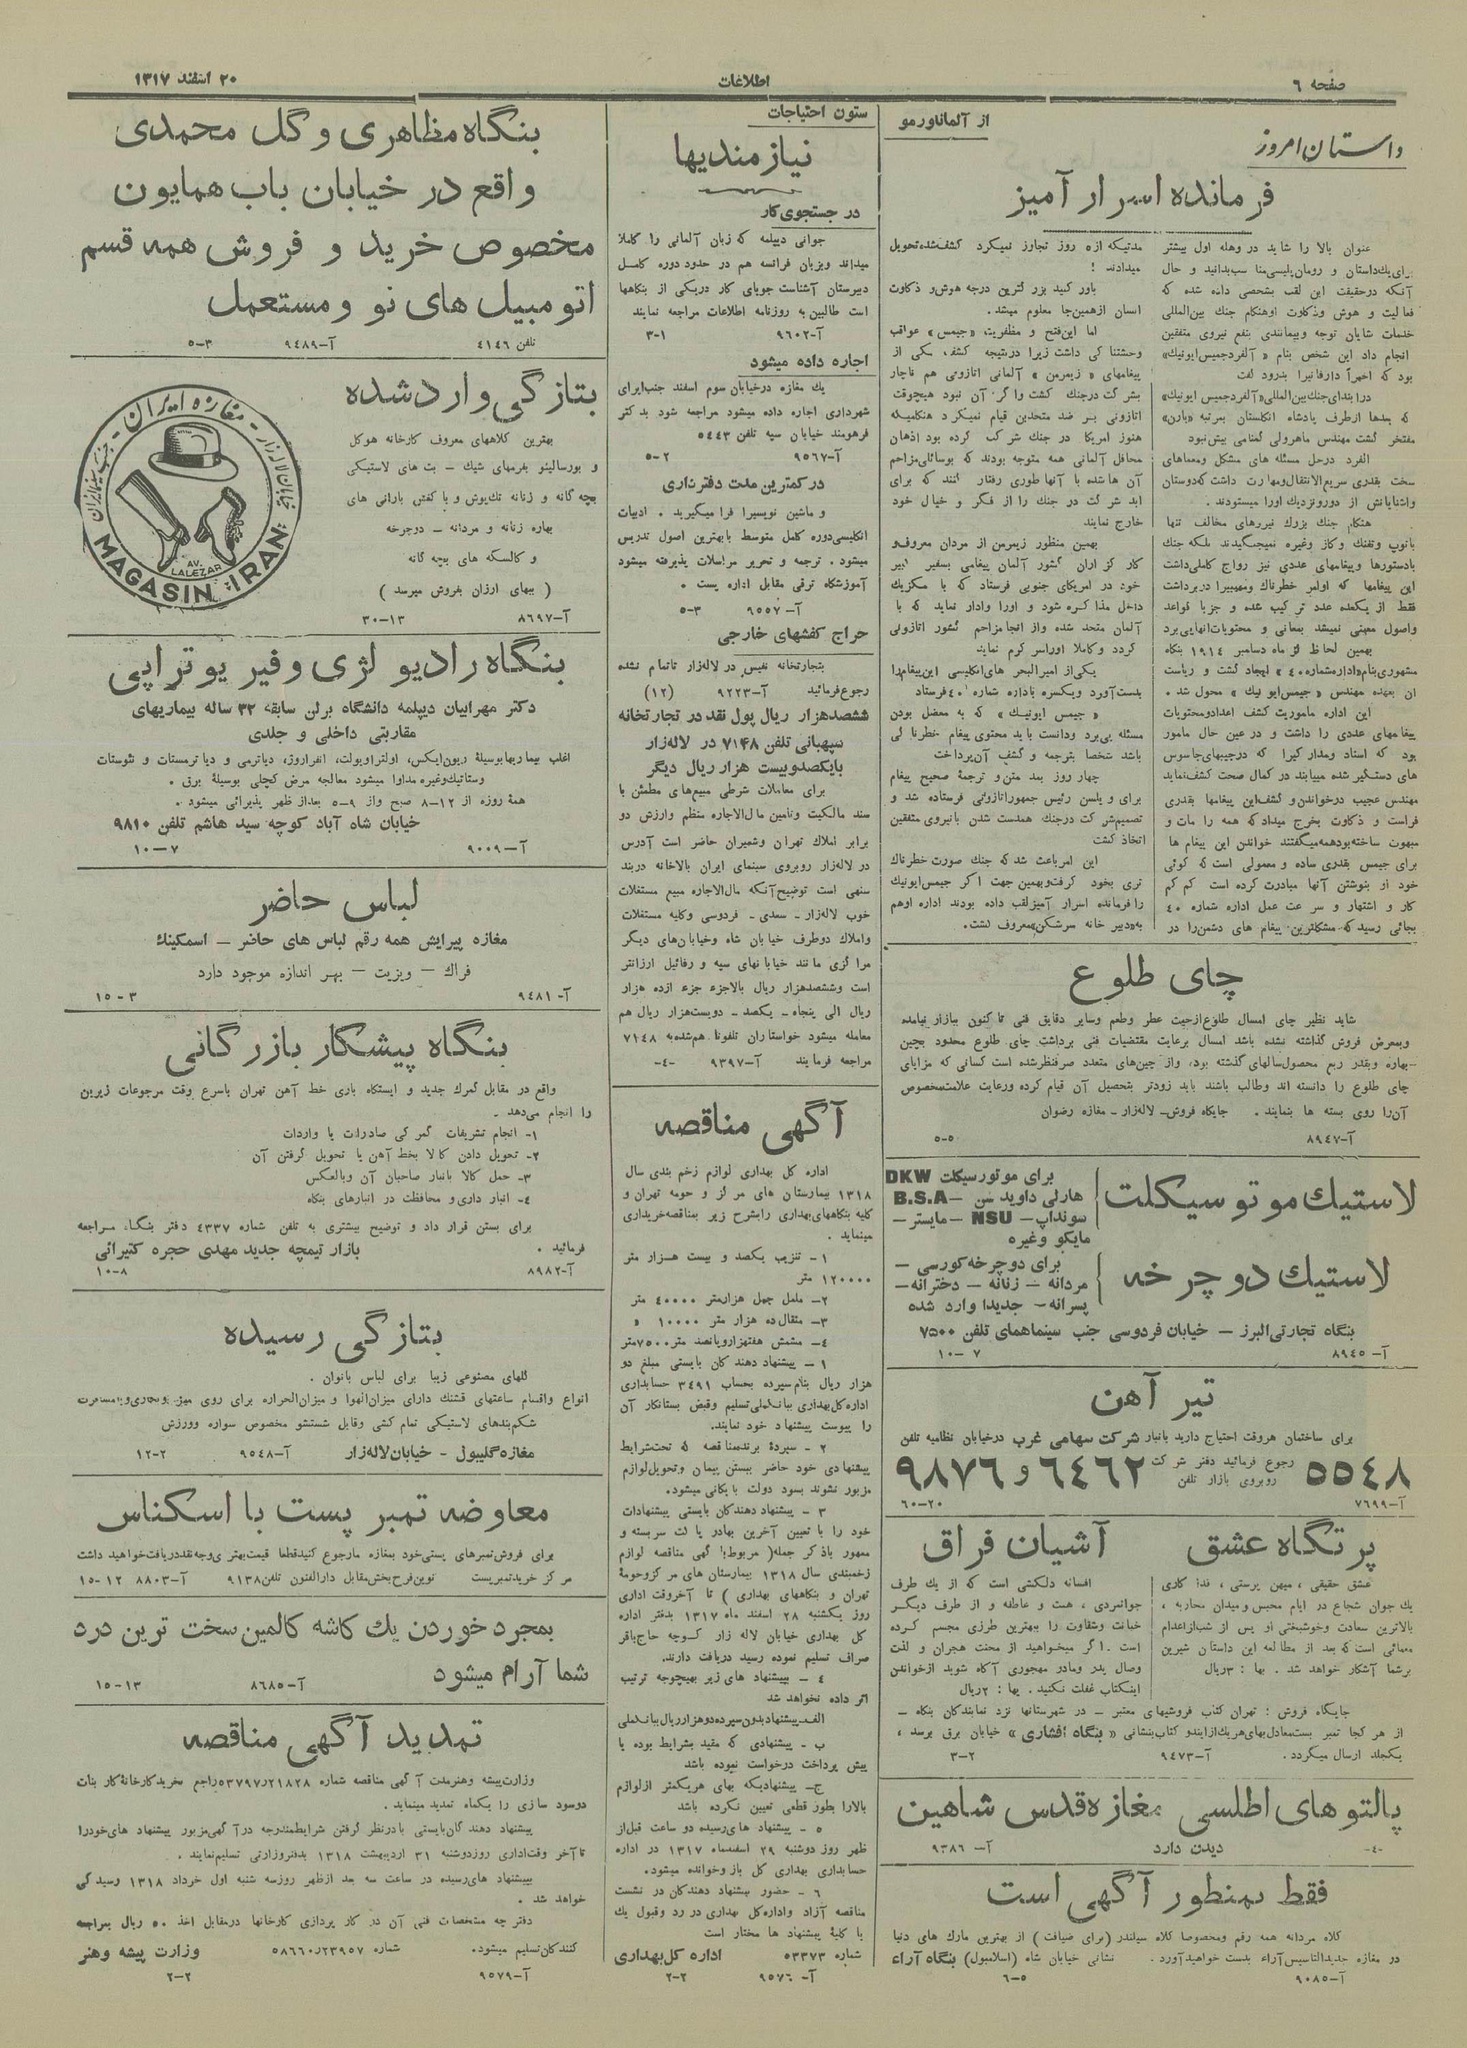 صفحه ٦
اطلاعات
٢٠ اسفند ١٣١٧
داستان امروز
از آلماناورمو
فرمانده اسرار آمیز
عنوان بالا را شاید در وهله اول بیشتر
برای یك داستان و رومان پلیسی مناسب بدانید و حال
آنکه درحقیقت این لقب بشخصی داده شده که
فعالیت و هوش وذکاوت اوهنگام جنك بین‌المللی
خدمات شایان توجه وبیمانندی بنفع نیروی متفقین
انجام داد این شخص بنام « آلفردجمیس ایونیك»
بود که اخیراً دارفانیرا بدرود گفت
درابتدای جنك بین‌المللی «آلفردجمیس ایونیك»
که بعدها ازطرف پادشاه انگلستان بمرتبه «بارن»
مفتخر گشت مهندس ماهرولی گمنامی بیش نبود
الفرد درحل مسئله های مشکل ومعماهای
سخت بقدری سریع‌الانتقال ومهارت داشت که دوستان
واشنایانش از دورونزدیك اورا میستودند.
هنگام جنك بزرك نیروهای مخالف تنها
باتوپ وتفنك وگاز وغیره نمیجنگیدند بلکه جنك
بادستورها وپیغامهای عددی نیز رواج کاملی داشت
این پیغامها که اوامر خطرناك ومهیبرا دربرداشت
فقط از یکعده عدد ترکیب شده و جزبا قواعد
واصول معینی نمیشد بمعانی و محتویات انهاپی برد
بهمین لحاظ در ماه دسامبر ١٩١٤ بنگاه
مشهوری بنام «اداره شماره ٤٠» ایجاد گشت و ریاست
آن بعهده مهندس « جیمس ایونیك » محول شد .
این اداره ماموریت کشف اعداد ومحتویات
پیغامهای عددی را داشت و در عین حال مامور
بود که اسناد ومدارکیرا که درجیبهای جاسوس
های دستگیر شده مییابند در کمال صحت کشف نماید
مهندس عجیب درخواندن و کشف این پیغامها بقدری
فراست و ذکاوت بخرج میداد که همه را مات و
مبهوت ساخته بود همه میگفتند خواندن این پیغام ها
برای جیمس بقدری ساده و معمولی است که گوئی
خود او بنوشتن آنها مبادرت کرده است کم کم
کار و اشتهار و سرعت عمل اداره شماره ٤٠
بجائی رسید که مشکلترین پیغام های دشمن را در
مدتیکه ازه روز تجاوز نمیکرد کشف شده تحویل
میدادند !
باور کنید بزرگترین درجه هوش و ذکاوت
انسان ازهمین‌جا معلوم میشد.
اما این فتح و مظفریت «جیمس» عواقب
وحشتناکی داشت زیرا درنتیجه کشف یکی از
پیغامهای « زیمرمن » آلمانی اتازونی هم ناچار
بشرکت درجنك گشت واگر آن نبود هیچوقت
اتازونی بر ضد متحدین قیام نمیکرد هنگامیکه
هنوز امریکا در جنك شرکت نکرده بود اذهان
محافل آلمانی همه متوجه بودند که بوسائلی مزاحم
آن ها شده با آنها طوری رفتار کنند که برای
ابد شرکت در جنك را از فکر و خیال خود
خارج نمایند
بهمین منظور زیمرمن از مردان معروف و
کارگزاران کشور آلمان پیغامی بسفیر کبیر
خود در امریکای جنوبی فرستاد که با مکزیك
داخل مذاکره شود و اورا وادار نماید که با
آلمان متحد شده واز انجا مزاحم کشور اتازونی
گردد وکاملا اوراسر گرم نماید
یکی از امیرالبحر های انگلیسی این پیغام را
بدست آورد ویکسره باداره شماره ٤٠ فرستاد
« جیمس ایونیك » که به معضل بودن
مسئله پی برد ودانست باید محتوی پیغام خطرناکی
باشد شخصا بترجمه و کشف آن پرداخت
چهار روز بعد متن و ترجمهٔ صحیح پیغام
برای و یلسن رئیس جمهوراتازونی فرستاده شد و
تصمیم شرکت درجنك همدست شدن بانیروی متفقین
اتخاذ گشت
این امرباعث شد که جنك صورت خطرناك
تری بخود گرفت وبهمین جهت اگر جیمس ایونیك
را فرمانده اسرار آمیز لقب داده بودند اداره اوهم
به «دبیر خانه سرشکن» معروف گشت.
چای طلوع
شاید نظیر چای امسال طلوع ازحیث عطر وطعم وسایر دقایق فنی تاکنون ببازار نیامده
وبمعرض فروش گذاشته نشده باشد امسال برعایت مقتضیات فنی برداشت چای طلوع محدود بچین
بهاره وبقدر ربع محصول سالهای گذشته بوده واز چین‌های متعدد صرفنظر شده است کسانی که مزایای
چای طلوع را دانسته اند وطالب باشند باید زودتر بتحصیل آن قیام کرده ورعایت علامت مخصوص
آن را روی بسته ها بنمایند . جایگاه فروش - لاله‌زار - مغازه رضوان
آ-٨٩٤٧ ٥-٥
لاستیك موتو سیکلت
برای موتورسیکلت DKW
هارلی داوید سن - B.S.A
سونداپ - NSU - مایستر -
مایکو وغیره
لاستیك دوچرخه
برای دوچرخه کورسی -
مردانه - زنانه - دخترانه -
پسرانه - جدیدا وارد شده
بنگاه تجارتی البرز - خیابان فردوسی جنب سینماهمای تلفن ٧٥٠٠
آ- ٨٩٤٥ ٧-١٠
تیر آهن
برای ساختمان هروقت احتیاج دارید بانبار شرکت سهامی غرب درخیابان نظامیه تلفن
٥٥٤٨ رجوع فرمائید دفتر شرکت روبروی بازار تلفن ٦٤٦٢ و ٩٨٧٦
آ-٧٦٩٩ ٢٠-٦٠
پرتگاه عشق
عشق حقیقی ، میهن پرستی ، فداکاری
یك جوان شجاع در ایام محبس و میدان محاربه ،
بالاترین سعادت وخوشبختی او پس از شب‌اعدام
معمائی است که بعد از مطالعه این داستان شیرین
برشما آشکار خواهد شد . بها : ٣ریال
آشیان فراق
افسانه دلکشی است که از یك طرف
جوانمردی ، همت و عاطفه و از طرف دیگر
خیانت وشقاوت را بهترین طرزی مجسم کرده
است . اگر میخواهید از محنت هجران و لذت
وصال پدر ومادر مهجوری آگاه شوید ازخواندن
اینکتاب غفلت نکنید . بها : ٢ریال
جایگاه فروش ؛ تهران کتاب فروشیهای معتبر - در شهرستانها نزد نمایندگان بنگاه -
از هر کجا تمبر پست معادل بهای هریك ازایندو کتاب بنشانی « بنگاه افشاری » خیابان برق برسد ،
یکجلد ارسال میگردد . آ-٩٤٧٣ ٢-٣
پالتوهای اطلسی مغازه قدس شاهین
دیدن دارد آ- ٩٣٨٦ -٤-
فقط بمنظور آگهی است
کلاه مردانه همه رقم ومخصوصا کلاه سیلندر (برای ضیافت ) از بهترین مارك های دنیا
در مغازه جدیدالتاسیس آراء بدست خواهید آورد . نشانی خیابان شاه (اسلامبول) بنگاه آراء
آ-٩٠٨٥ ٥-٦
ستون احتیاجات
نیازمندیها
در جستجوی کار
جوانی دیپلمه که زبان آلمانی را کاملا
میداند وبزبان فرانسه هم در حدود دوره کامل
دبیرستان آشناست جویای کار دریکی از بنگاهها
است طالبین به روزنامه اطلاعات مراجعه نمایند
آ-٩٦٠٢ ١-٣
اجاره داده میشود
یك مغازه درخیابان سوم اسفند جنب‌ایرای
شهرداری اجاره داده میشود مراجعه شود بدکتر
فرهومند خیابان سپه تلفن ٥٤٤٣
آ-٩٥٦٧ ٢-٥
در کمترین مدت دفترداری
و ماشین نویسیرا فرا میگیرید . ادبیات
انگلیسی دوره کامل متوسط بابهترین اصول تدریس
میشود . ترجمه و تحریر مراسلات پذیرفته میشود
آموزشگاه ترقی مقابل اداره پست .
آ- ٩٥٥٧ ٣-٥
حراج کفشهای خارجی
بتجارتخانه نفیس در لاله‌زار تاتمام نشده
رجوع فرمائید آ-٩٢٢٣ (١٢)
ششصدهزار ریال پول نقد در تجارتخانه
سپهبانی تلفن ٧١٤٨ در لاله‌زار
بایکصدوبیست هزار ریال دیگر
برای معاملات شرطی مبیع‌های مطمئن با
سند مالکیت وتامین مال‌الاجاره منظم وارزش دو
برابر املاك تهران وشمیران حاضر است آدرس
در لاله‌زار روبروی سینمای ایران بالاخانه دربند
سنهی است توضیح آنکه مال‌الاجاره مبیع مستغلات
خوب لاله‌زار - سعدی - فردوسی وکلیه مستغلات
واملاك دوطرف خیابان شاه وخیابان‌های دیگر
مرکزی مانند خیابانهای سپه و رفائیل ارزانتر
است وششصدهزار ریال بالاجزء جزء ازده هزار
ریال الی پنجاه - یکصد - دویست‌هزار ریال هم
معامله میشود خواستاران تلفونا هم شده به ٧١٤٨
مراجعه فرمایند آ-٩٣٩٧ -٤-
آگهی مناقصه
اداره کل بهداری لوازم زخم بندی سال
١٣١٨ بیمارستان های مرکز و حومه تهران و
کلیه بنگاههای بهداری رابشرح زیر بمناقصه خریداری
مینماید .
١ - تنزیب یکصد و بیست هزار متر
١٢٠٠٠٠ متر
٢- ململ چهل هزارمتر ٤٠٠٠٠ متر
٣- متقال ده هزار متر ١٠٠٠٠ »
٤- مشمش هفتهزاروپانصد متر ٧٥٠٠متر
١ - پیشنهاد دهندگان بایستی مبلغ دو
هزار ریال بنام سپرده بحساب ٣٤٩١ حسابداری
اداره کل بهداری ببانك ملی تسلیم وقبض بستانکار آن
را پیوست پیشنهاد خود نمایند.
٢ - سپردهٔ برنده مناقصه که تحت شرایط
پیشنهادی خود حاضر ببستن پیمان وتحویل لوازم
مزبور نشوند بسود دولت بایگانی میشود.
٣ - پیشنهاد دهندگان بایستی پیشنهادات
خود را با تعیین آخرین بهادر پاکت سربسته و
ممهور باذکر جمله( مربوط بآگهی مناقصه لوازم
زخمبندی سال ١٣١٨ بیمارستان های مرکزوحومهٔ
تهران و بنگاههای بهداری ) تا آخروقت اداری
روز یکشنبه ٢٨ اسفند ماه ١٣١٧ بدفتر اداره
کل بهداری خیابان لاله زار کوچه حاج‌باقر
صراف تسلیم نموده رسید دریافت دارند.
٤ - بپیشنهاد های زیر بهیچوجه ترتیب
اثر داده نخواهد شد
الف- پیشنهاد بدون سپرده دوهزارریال ببانك ملی
ب - پیشنهادی که مقید بشرایط بوده یا
پیش پرداخت درخواست نموده باشد
ج- پیشنهادیکه بهای هریکمتر ازلوازم
بالارا بطور قطعی تعیین نکرده باشد
٥ - پیشنهاد های رسیده دو ساعت قبل از
ظهر روز دوشنبه ٢٩ اسفندماه ١٣١٧ در اداره
حسابداری بهداری کل باز وخوانده میشود.
٦ - حضور پیشنهاد دهندگان در نشست
مناقصه آزاد واداره کل بهداری در رد وقبول یك
یا کلیهٔ پیشنهاد ها مختار است
شماره ٥٣٣٧٣ اداره کل بهداری
آ- ٩٥٧٦ ٢-٢
بنگاه مظاهری و گل محمدی
واقع در خیابان باب همایون
مخصوص خرید و فروش همه قسم
اتومبیل های نو و مستعمل
تلفن ٤١٤٦ آ-٩٤٨٩ ٣-٥
بتازگی وارد شده
بهترین کلاههای معروف کارخانه هوکل
و بورسالینو بفرمهای شیك - بت های لاستیکی
بچه گانه و زنانه تك‌پوش و یا کفش بارانی های
بهاره زنانه و مردانه - دوچرخه
و کالسکه های بچه گانه
( ببهای ارزان بفروش میرسد )
آ-٨٦٩٧ ١٣-٣٠
مغازه ایران
خیابان لاله‌زار
جنب سینما ایران
AV. LALEZAR
MAGASIN IRAN
بنگاه رادیو لژی و فیزیوتراپی
دکتر مهرابیان دیپلمه دانشگاه برلن سابقه ٣٢ ساله بیماریهای
مقاربتی داخلی و جلدی
اغلب بیماریها بوسیلهٔ ریون‌ایکس، اولتراویولت، انفراروژ، دیاترمی و دیاترمستات و تئوستات
وستاتیك وغیره مداوا میشود معالجه مرض کچلی بوسیلهٔ برق .
همهٔ روزه از ١٢-٨ صبح واز ٩-٥ بعداز ظهر پذیرائی میشود .
خیابان شاه آباد کوچه سید هاشم تلفن ٩٨١٠
آ-٩٠٠٩ ٧-١٠
لباس حاضر
مغازه پیرایش همه رقم لباس های حاضر - اسمکینك
فراك - ویزیت - بهر اندازه موجود دارد
آ- ٩٤٨١ ٣-١٥
بنگاه پیشکار بازرگانی
واقع در مقابل گمرك جدید و ایستگاه باری خط آهن تهران باسرع وقت مرجوعات زیرین
را انجام میدهد .
١- انجام تشریفات گمرکی صادرات یا واردات
٢- تحویل دادن کالا بخط آهن یا تحویل گرفتن آن
٣- حمل کالا بانبار صاحبان آن وبالعکس
٤- انبار داری و محافظت در انبارهای بنگاه
برای بستن قرار داد و توضیح بیشتری به تلفن شماره ٤٣٣٧ دفتر بنگاه مراجعه
فرمائید . بازار تیمچه جدید مهدی حجره کتیرائی
آ-٨٩٨٢ ٨-١٠
بتازگی رسیده
گلهای مصنوعی زیبا برای لباس بانوان .
انواع واقسام ساعتهای قشنك دارای میزان‌الهوا و میزان‌الحراره برای روی میز
شکم‌بندهای لاستیکی تمام کشی وقابل شستشو مخصوص سواره وورزش
مغازه گلیپول - خیابان لاله‌زار آ-٩٥٤٨ ٢-١٢
معاوضه تمبر پست با اسکناس
برای فروش تمبرهای پستی خود بمغازه مارجوع کنید قطعا قیمت بهتری وجه نقد دریافت خواهید داشت
مرکز خرید تمبر پست نوین فرح‌بخش مقابل دارالفنون تلفن ٩١٣٨ آ-٨٨٠٣ ١٢-١٥
بمجرد خوردن یك کاشه کالمین سخت ترین درد
شما آرام میشود آ-٨٦٨٥ ١٣-١٥
تمدید آگهی مناقصه
وزارت پیشه وهنرمدت آگهی مناقصه شماره ٥٣٧٩٧٫٢١٨٢٨راجع بخریدکارخانهٔ کربنات
دوسود سازی را یکماه تمدید مینماید .
پیشنهاد دهندگان بایستی بادرنظر گرفتن شرایط مندرجه در آگهی مزبور پیشنهاد های خودرا
تاآخر وقت اداری روزدوشنبه ٣١ اردیبهشت ١٣١٨ بدفتروزارتی تسلیم نمایند .
بپیشنهاد های رسیده در ساعت سه بعد ازظهر روزسه شنبه اول خرداد ١٣١٨ رسیدگی
خواهد شد .
دفترچه مشخصات فنی آن در کار پردازی کارخانها درمقابل اخذ ٥٠ ریال بمراجعه
کنندگان تسلیم میشود. شماره ٥٨٦٦٠٫٢٣٩٥٧ وزارت پیشه وهنر
آ-٩٥٧٩ ٢-٢